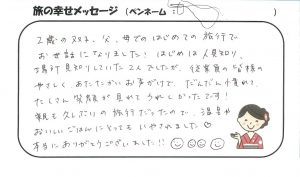 旅の幸せメッセージ (ペンネーム : )
2歳の 、父、母でのはじめての旅行で
お世話になりました! はじめは人見知り
場所見知りしていた2人でしたが、従業員の皆様の
やさしく あたたかいお声がけで、だんだん慣れて、
たくさん笑顔が見れてうれしかったです!
親も久しぶりの旅行だったので、温泉や
おいしいごはんにとってもいやされました♡
本当にありがとうございました!!